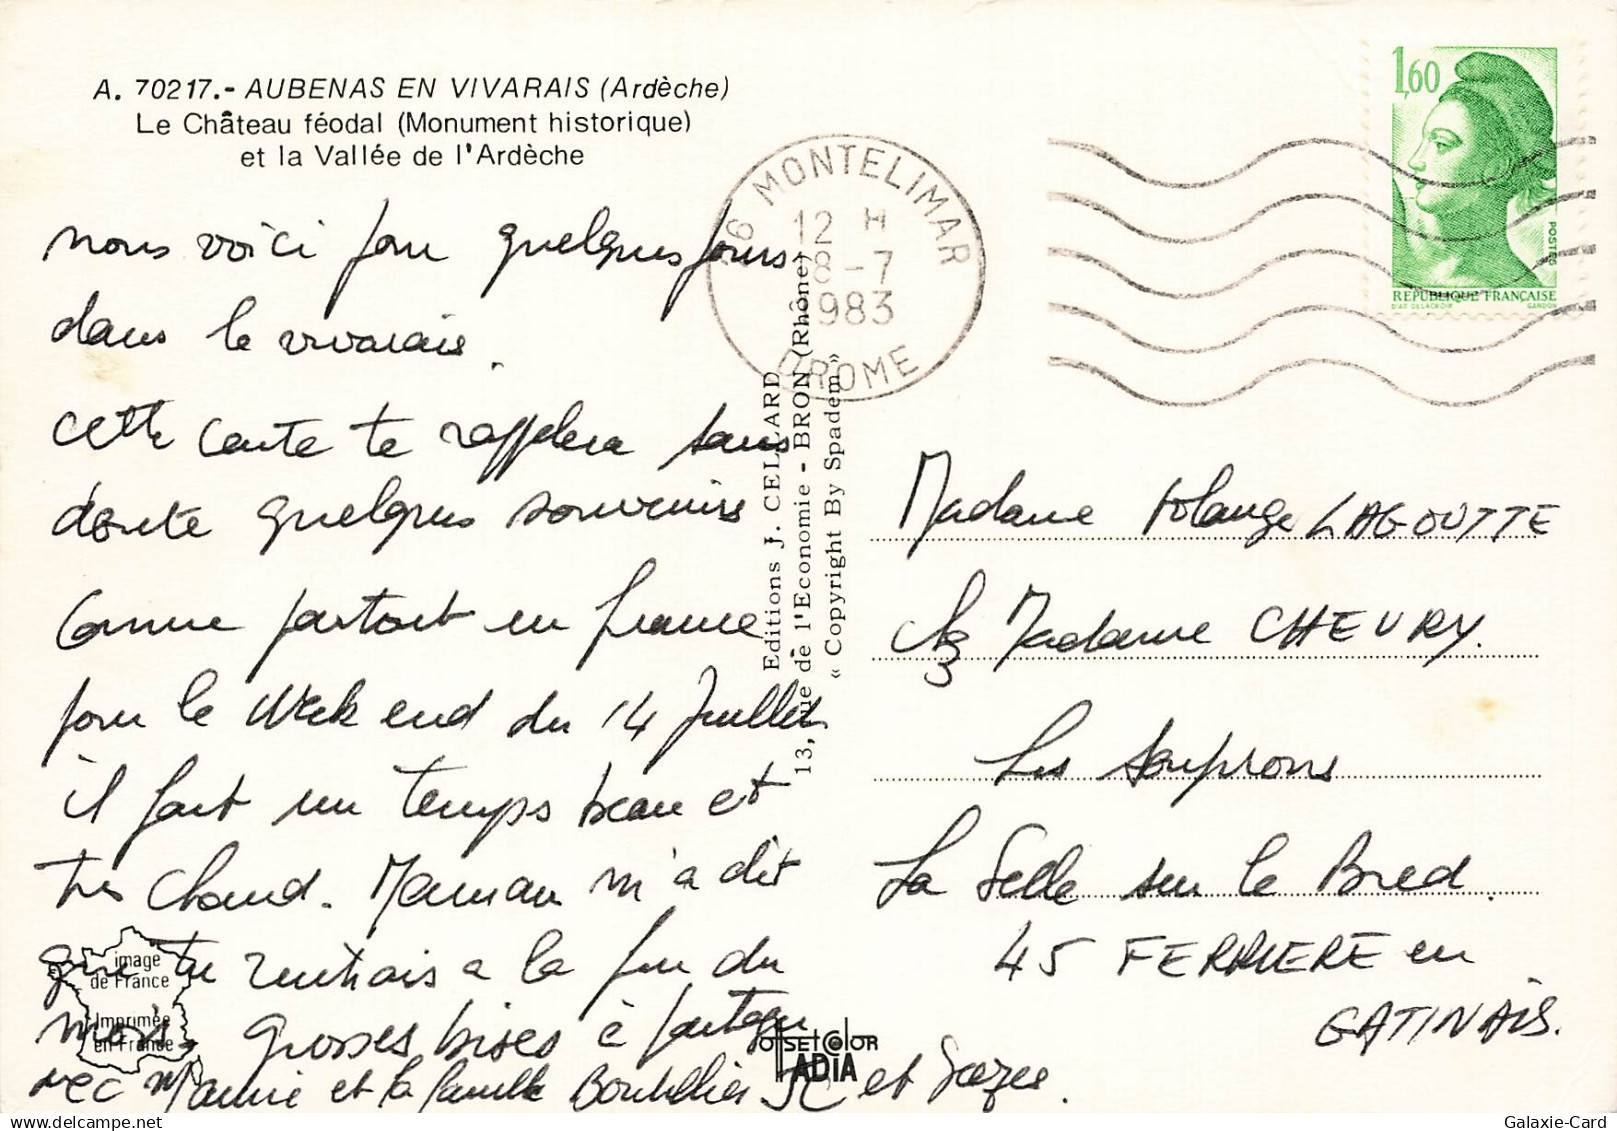 A. 70217.- AUBENAS EN VIVARAIS (Ardèche)
Le Château féodal (Monument historique)
et la Vallée de l'Ardèche
nous voici pour quelques jours
dans le vivarais.
cette carte te rappelera sans
doute quelques souvenirs
comme partout en france
pour le Week end du 14 Juillet
il fait un temps beau et
très chaud. Maman m'a dit
que tu rentrais a la fin du
mois. grosses bises à partager
avec Mamie et la famille Bouteillier JC et
image
de France
Imprimée
en France
Editions J. CELLARD
13, rue de l'Economie - BRON (Rhône)
« Copyright By Spadem »
OFFSET COLOR
ADIA
26 MONTELIMAR
12 H
8-7
1983
DROME
1,60
POSTES
REPUBLIQUE FRANÇAISE
D'AP. DELACROIX GANDON
Madame Solange LAGOUTTE
Chez Madame CHEVRY.
Les Souprons
La Selle sur le Bied.
45 FERRIERE en
GATINAIS.
Galaxie-Card